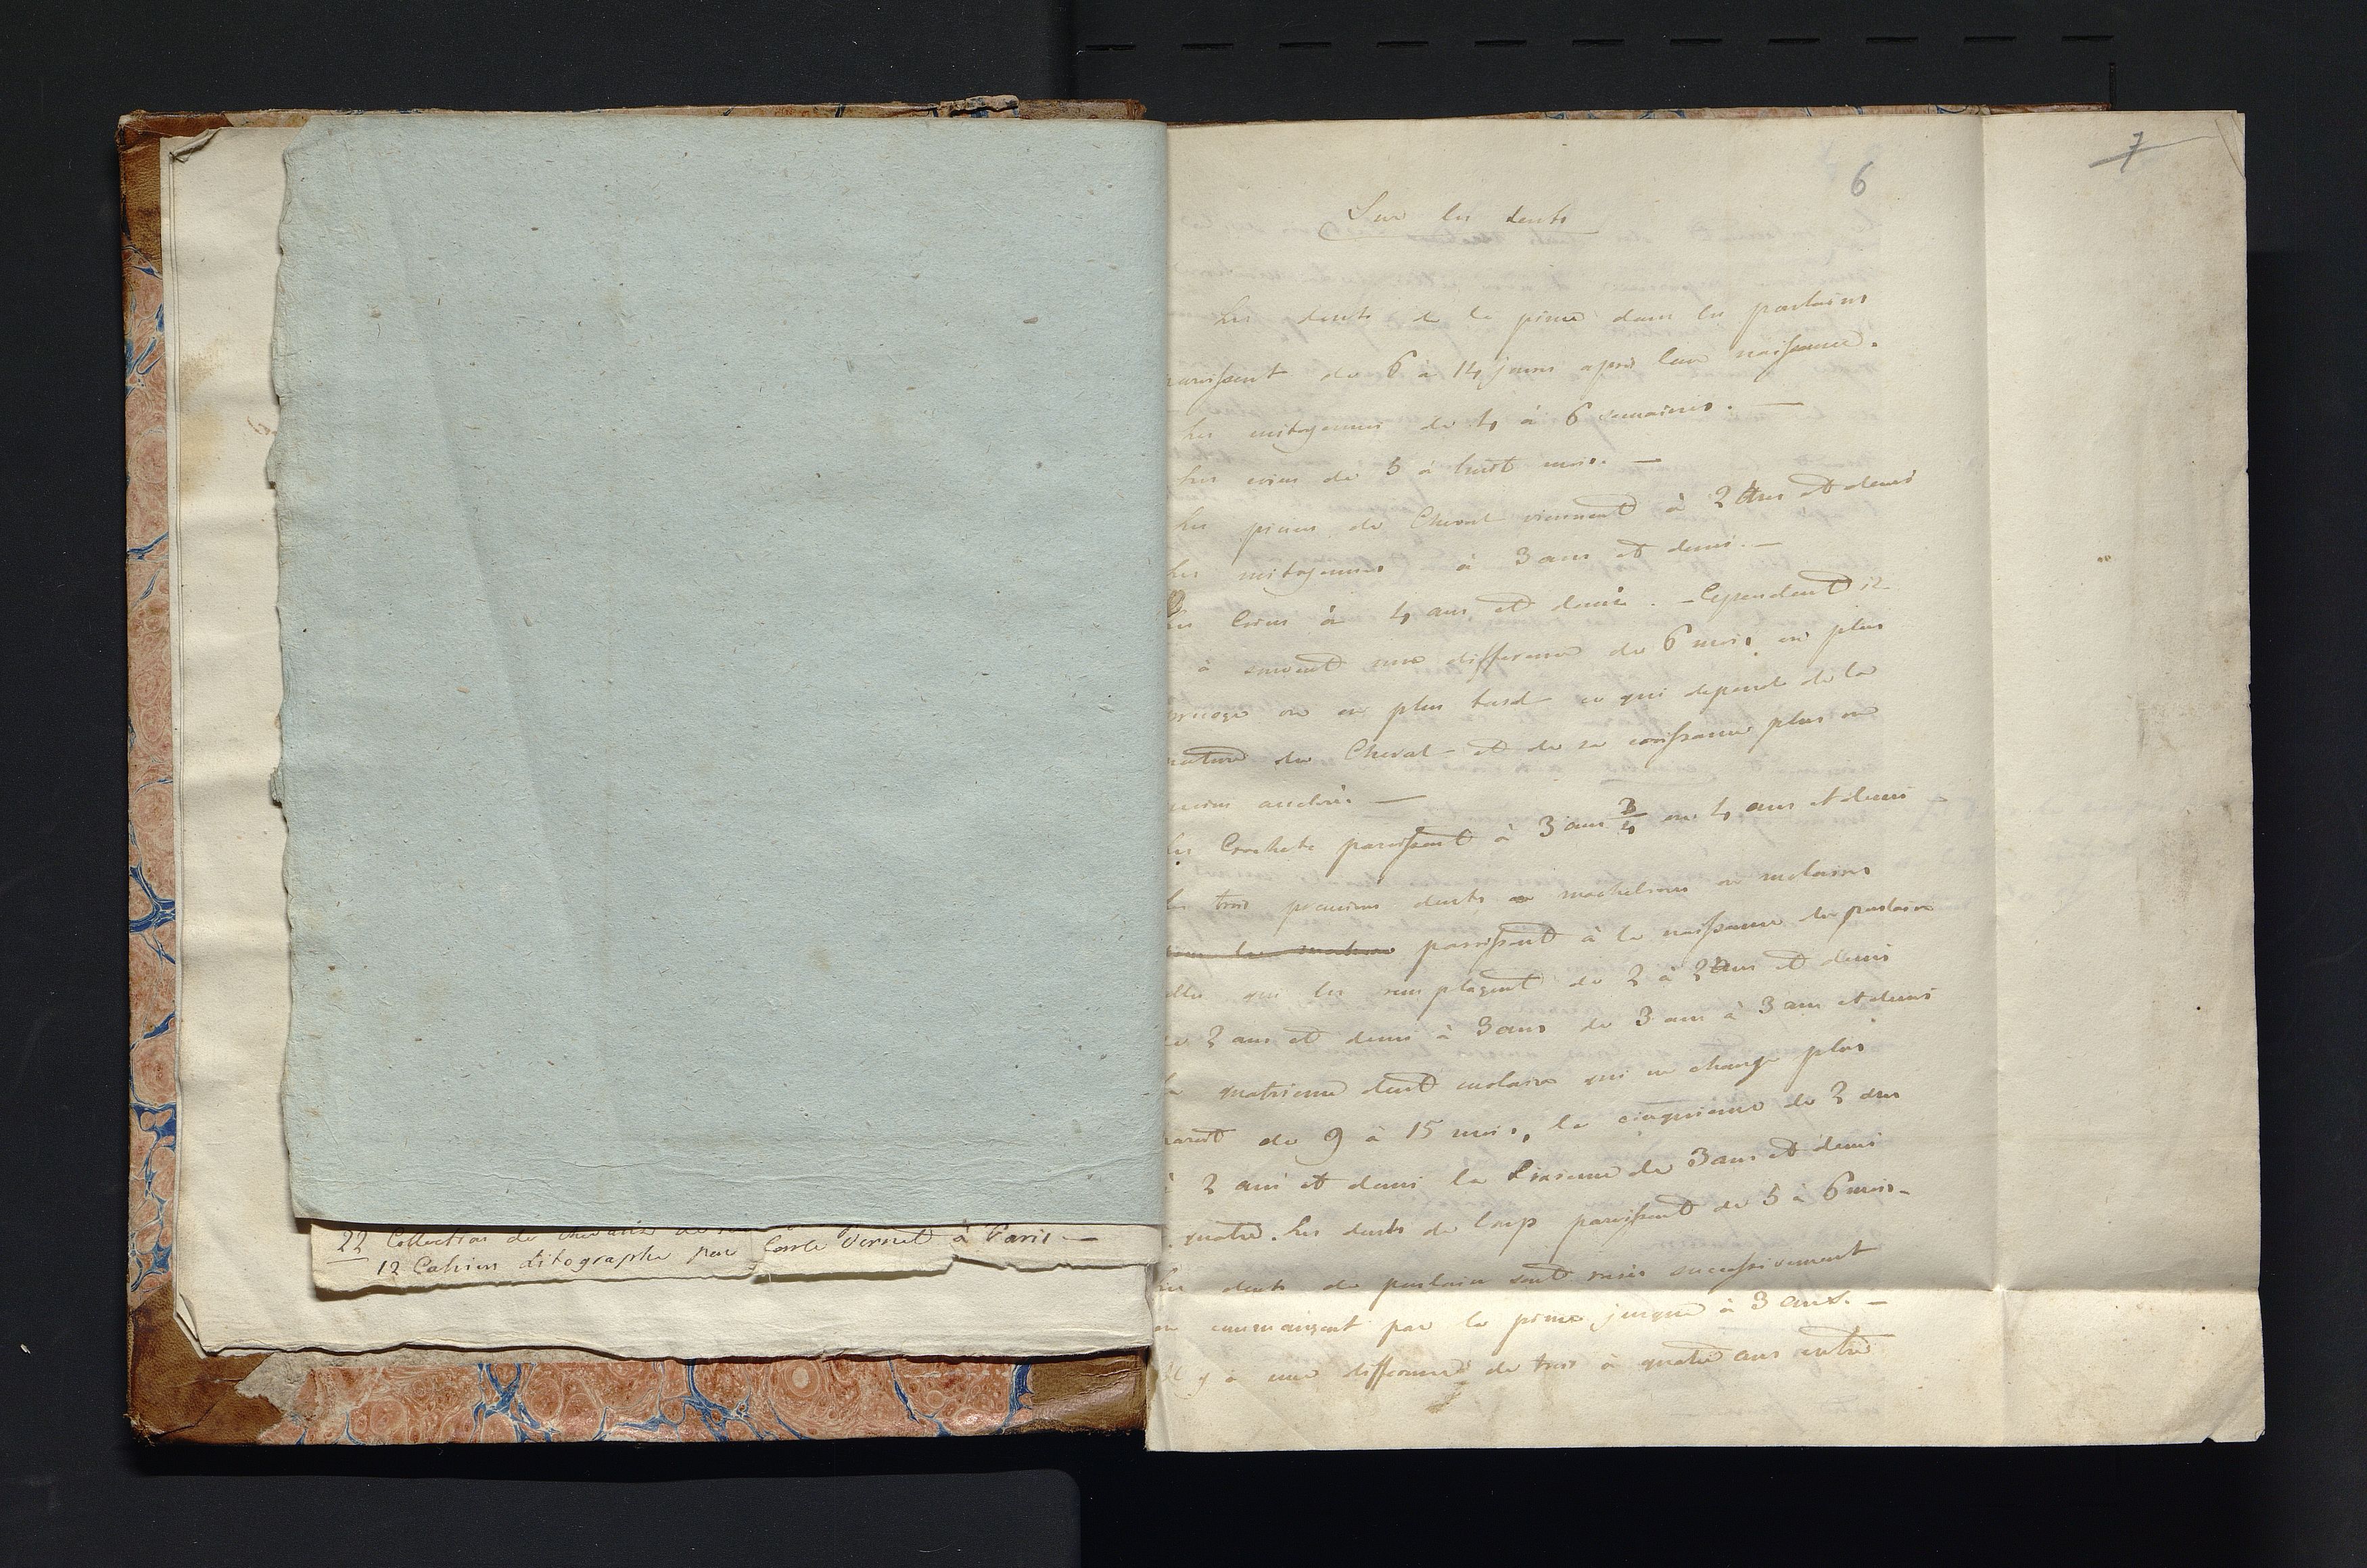 22 Collection de chevaux
12 Cahiers litographe par Carle Vernet à Paris —
7
6
Sur les dents
Les dents de la pince dans les poulains
paroissent de 6 à 14 jours après leur naissance.
Les mitoyennes de 4 à 6 semaines. —
Les coins de 5 à huit mois. —
Les pinces de Cheval viennent à 2 Ans et demi
Les mitoyennes à 3 ans et demi. —
Les Coins à 4 ans et demie. — Cependent il
à souvent une difference de 6 mois en plus
ou en plus tard ce qui depend de la
nature du Cheval — et de sa croissance plus ou
moins —
Les Crochets paroissent à 3 ans 3/4 ou 4 ans et demi
les trois premieres dents machelieres ou molaires
paroissent à la naissance du poulain
celles qui les remplaçent de 2 à 2 Ans et demi
de 2 ans et demi à 3 ans de 3 ans à 3 ans et demi
la quatrieme dent molaire qui ne change plus
paroit de 9 à 15 mois, la cinquieme de 2 ans
à 2 ans et demi la Sixieme de 3 ans et demi
à quatre. Les dents de loup paroissent de 5 à 6 mois —
Les dents de poulain sont rasées successivement
en commançent par la pince jusque à 3 ans. —
Il y à une difference de trois à quatre ans entre